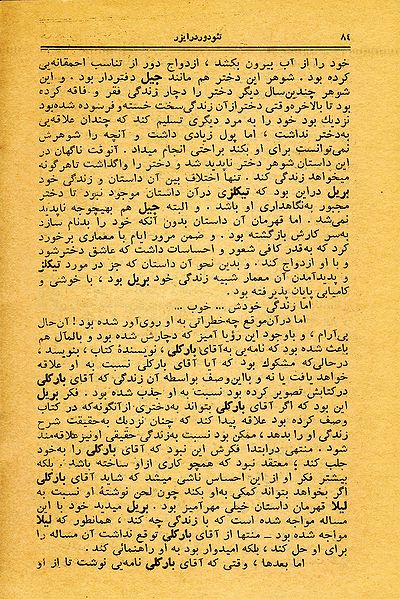 ۸۴ تئودور درایزر
خود را از آب بیرون بکشد ، ازدواج دور از تناسب احمقانه‌یی
کرده بود . شوهر این دختر هم مانند جیل دفتردار بود . و این
شوهر چندین‌سال دیگر دختر را دچار زندگی فقر و فاقه کرده
بود تا بالاخره‌وقتی دختر از آن زندگی سخت خسته و فرسوده شده‌بود
نزدیک بود خود را به مرد دیگری تسلیم کند که چندان علاقه‌یی
به‌دختر نداشت ، اما پول زیادی داشت و آنچه را شوهرش
نمی‌توانست برای او بکند براحتی انجام میداد . آنوقت ناگهان در
این داستان شوهر دختر ناپدید شد و دختر را واگذاشت تاهرگونه
میخواهد زندگی کند . تنها اختلاف بین آن داستان و زندگی خود
بریل دراین بود که تیکلزی درآن داستان موجود نبود تا دختر
مجبور به‌نگاهداری او باشد . و البته جیل هم بهیچوجه ناپدید
نمی‌شد . اما قهرمان آن داستان بدون آنکه خود را بدنام سازد
به‌سر کارش بازگشته بود . و ضمن مرور ایام با معماری برخورد
کرد که به‌قدر کافی شعور و احساسات داشت که عاشق دخترشود
و با او ازدواج کند . و بدین نحو آن داستان که جز در مورد تیکلز
و پدیدآمدن آن معمار شبیه زندگی خود بریل بود ، با خوشی و
کامیابی پایان پذیرفته بود .
اما زندگی خودش ... خوب ...
اما درآن‌موقع چه‌خطراتی به او روی‌آور شده بود ! آن‌حال
بی‌آرام ، و باوجود این رؤیا آمیز که دچارش شده بود و بالمآل هم
باعث شده بود که نامه‌یی به‌آقای بارکلی ، نویسندهٔ کتاب ، بنویسد ،
درحالی‌که مشکوک بود که آیا آقای بارکلی نسبت به او علاقه
خواهد یافت یا نه و بااین‌وصف بواسطه آن زندگی که آقای بارکلی
درکتابش تصویر کرده بود نسبت به‌او جذب شده بود . فکر بریل
این بود که اگر آقای بارکلی بتواند به‌دختری ازآنگونه‌که در کتاب
وصف کرده بود علاقه پیدا کند که چنان نزدیک به‌حقیقت شرح
زندگی او را بدهد ، ممکن بود نسبت به‌زندگی حقیقی او نیز علاقه‌مند
شود . منتهی درابتدا فکرش این نبود که آقای بارکلی را به‌خود
جلب کند ، معتقد نبود که همچو کاری ازاو ساخته باشد . بلکه
بیشتر فکر او از این احساس ناشی میشد که شاید آقای بارکلی
اگر بخواهد بتواند کمکی به‌او بکند چون لحن نوشتهٔ او نسبت به
لیلا قهرمان داستان خیلی مهرآمیز بود . بریل میدید خود با این
مساله مواجه شده است که با زندگی چه کند ، همانطور که لیلا
مواجه شده بود ــ منتها از آقای بارکلی توقع نداشت آن مساله را
برای او حل کند ، بلکه امیدوار بود به او راهنمائی کند .
اما بعدها ، وقتی که آقای بارکلی نامه‌یی نوشت تا از او